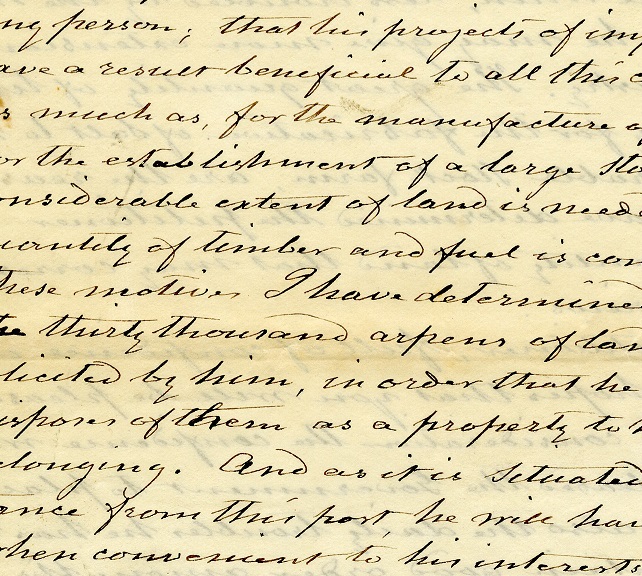 ng person; that his projects of imp
ave a result beneficial to all this c
s much as, for the manufacture of
or the establishment of a large sto
onsiderable extent of land is neede
uantity of timber and fuel is con
hese motives I have determined
the thirty thousand arpens of lan
licited by him, in order that he
ispose of them as a property to h
elonging. And as it is situated
ance from this post, he will hav
when convenient to his interests